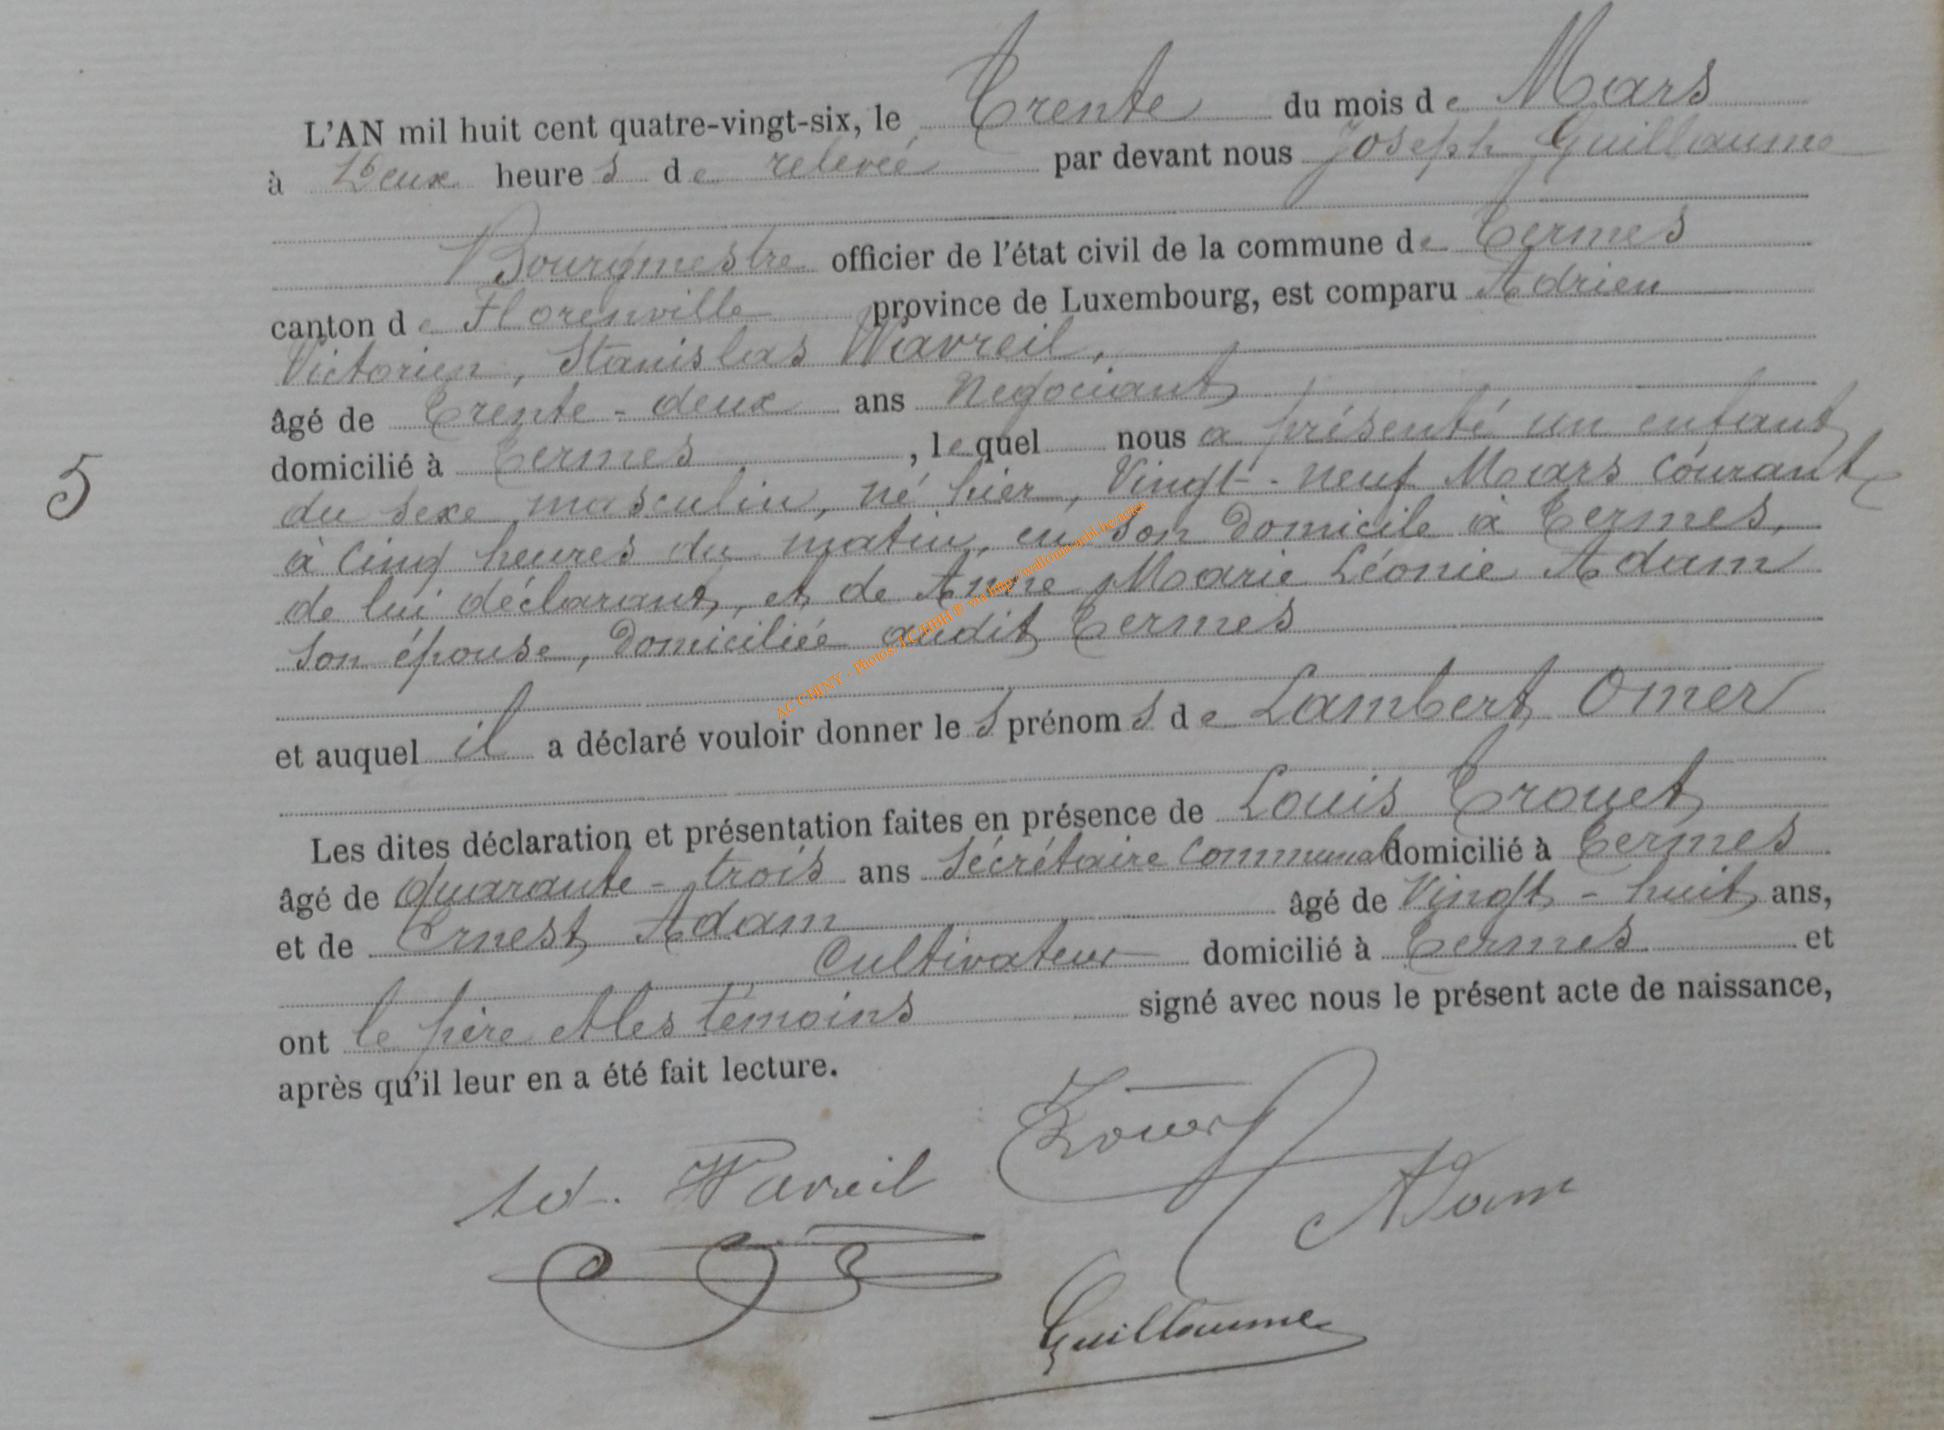 L'AN mil huit cent quatre-vingt-six, le Trente du mois de Mars
à Deux heures de relevée par devant nous Joseph Guillaume
Bourgmestre officier de l'état civil de la commune de Termes
canton de Florenville province de Luxembourg, est comparu Adrien
Victorien, Stanislas Wavreil,
âgé de Trente-deux ans Négociant
domicilié à Termes, lequel nous a présenté un enfant
5
du sexe masculin, né hier, Vingt-neuf Mars courant
à Cinq heures du matin, en son domicile à Termes,
de lui déclarant, et de Anne Marie Léonie Adam
son épouse, domiciliée audit Termes
AC CHINY - Photos
et auquel il a déclaré vouloir donner les prénoms de Lambert Omer
Les dites déclaration et présentation faites en présence de Louis Trouet
âgé de Quarante-trois ans Sécrétaire Communal domicilié à Termes
et de Ernest Adam âgé de Vingt-huit ans,
Cultivateur domicilié à Termes et
ont le père et les témoins signé avec nous le présent acte de naissance,
après qu'il leur en a été fait lecture.
Ad. Wavreil Trouet
Adam
Guillaume